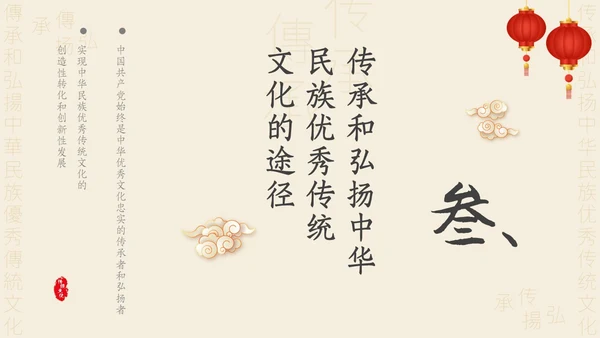 叁、
传承和弘扬中华
民族优秀传统
文化的途径
中国共产党始终是中华优秀文化忠实的传承者和弘扬者
实现中华民族优秀传统文化的
创造性转化和创新性发展
傳承和弘揚中華民族優秀傳統文化